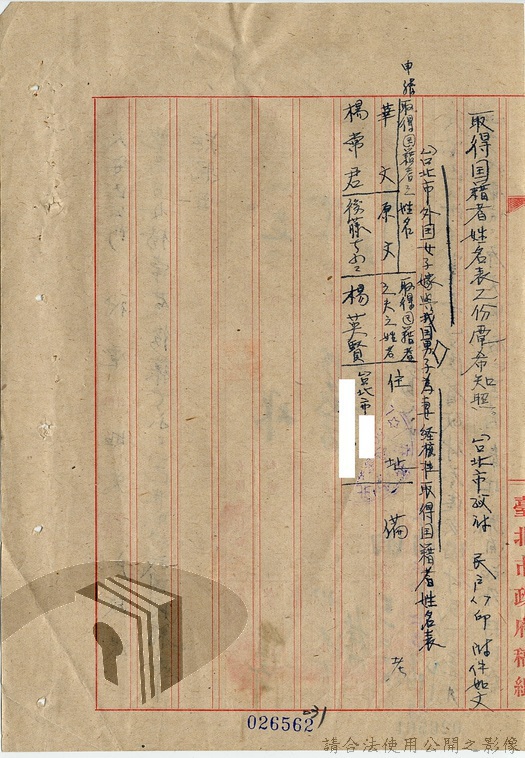 取得国籍者姓名表乙份希知照 台北市政府 民戶 印 附件如文
台北市外国女子嫁與我国男子為妻經核准取得国籍者姓名表
申請取得国籍者之姓名
華文
原文
取得国籍者之夫之姓名
住址
備考
楊常君
後藤
楊英賢
台北市
臺北市政府稿紙
026562
231
請合法使用公開之影像